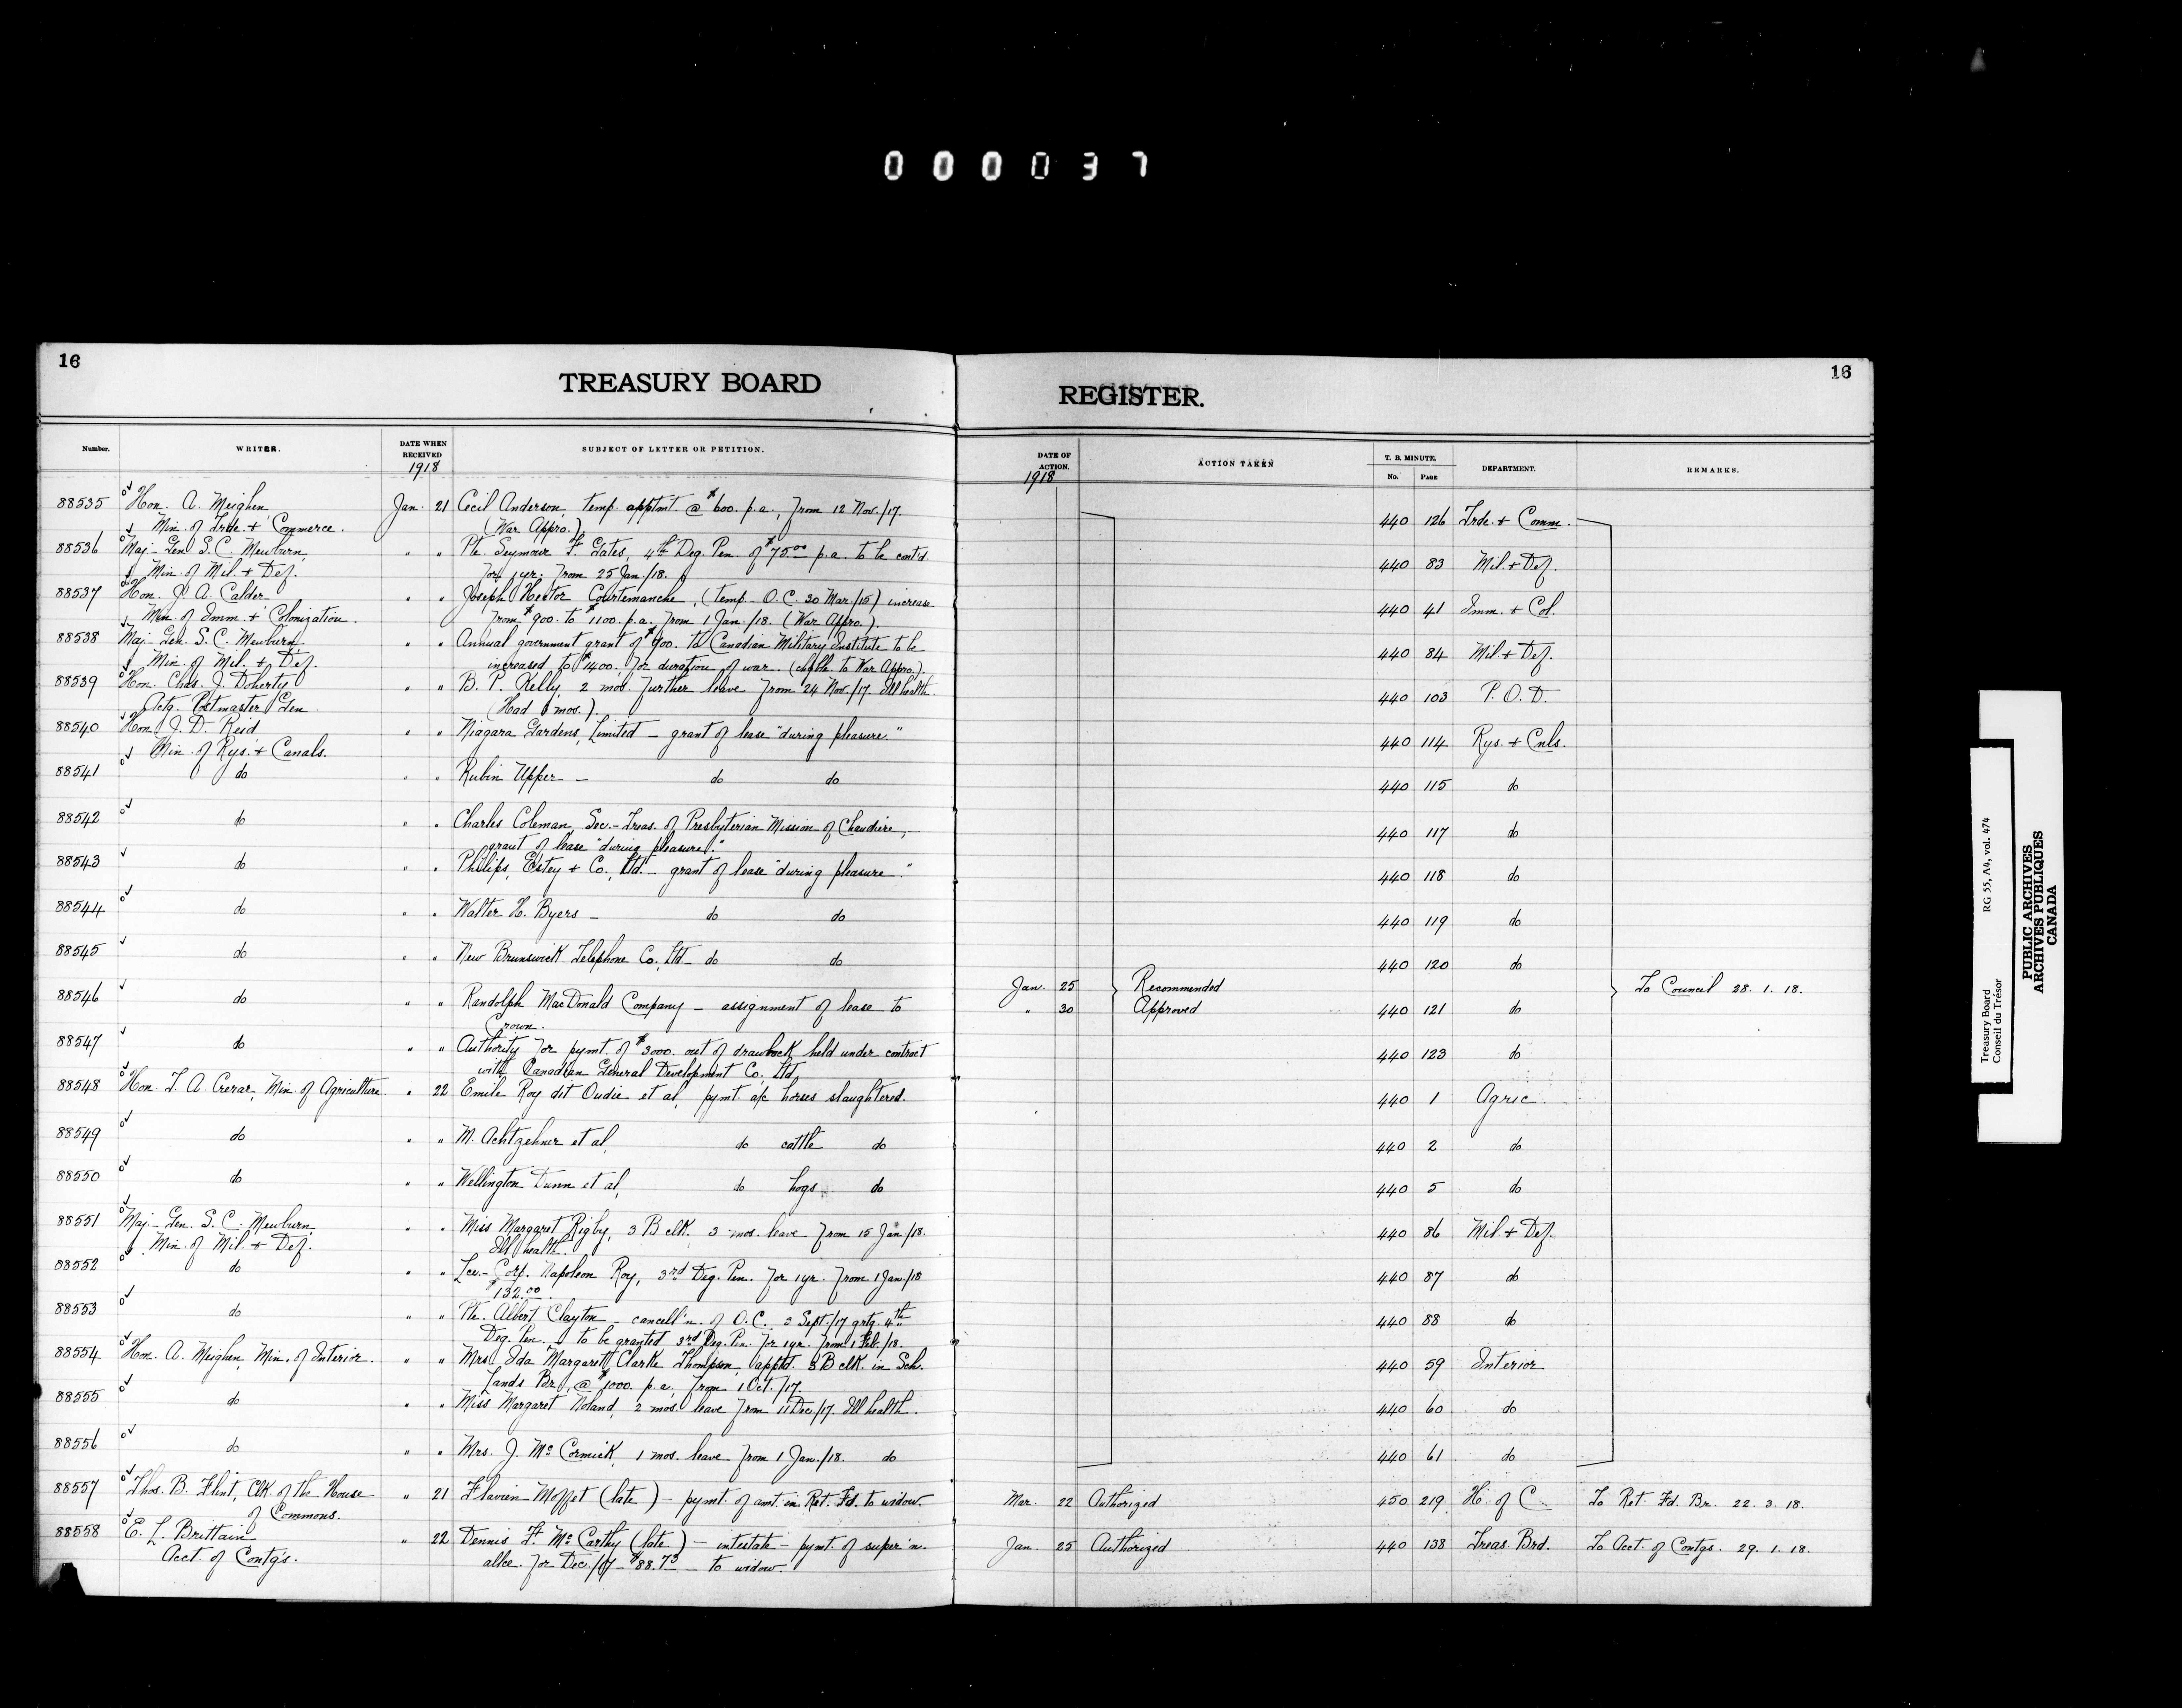 000037
16
TREASURY BOARD
REGISTER.
16
Number.
WRITER.
DATE WHEN RECEIVED
1918
SUBJECT OF LETTER OR PETITION.
DATE OF ACTION.
1918
ACTION TAKEN
T. B. MINUTE.
No. PAGE
DEPARTMENT.
REMARKS.
88535 Hon. A. Meighen, Jan. 21 Cecil Anderson, temp. apptmt. @ $600. p.a., from 12 Nov./17. 440 126 Trde. + Comm.
Min. of Trde. + Commerce. (War Appro.)
88536 Maj-Gen S. C. Mewburn, " " Pte. Seymour F. Gates, 4th Deg. Pen. of $75.00 p.a. to be cont'd. 440 83 Mil. + Def.
Min. of Mil. + Def. for 1 yr. from 25 Jan/18.
88537 Hon. J. A. Calder " " Joseph Hector Courtemanche, (temp. O.C. 30 Mar./15) increase 440 41 Imm. + Col.
Min. of Imm. + Colonization. from $900. to $1100. p.a. from 1 Jan./18. (War Appro.)
88538 Maj-Gen. S. C. Mewburn, " " Annual government grant of $900. to Canadian Military Institute to be 440 84 Mil. + Def.
Min. of Mil. + Def. increased to $1400. for duration of war. (chgble. to War Appro.)
88539 Hon. Chas. J. Doherty " " B. P. Kelly, 2 mos. further leave from 24 Nov./17. Ill health. 440 103 P. O. D.
Actg. Postmaster Gen. (Had 6 mos.)
88540 Hon. J. D. Reid, " " Niagara Gardens, Limited — grant of lease "during pleasure." 440 114 Rys. + Cnls.
Min. of Rys. + Canals.
88541 do " " Rubin Upper — do do 440 115 do
88542 do " " Charles Coleman, Sec.-Treas. of Presbyterian Mission of Chaudière, 440 117 do
grant of lease "during pleasure."
88543 do " " Philips, Estey + Co., Ltd. — grant of lease "during pleasure." 440 118 do
88544 do " " Walter H. Byers — do do 440 119 do
88545 do " " New Brunswick Telephone Co., Ltd. do do 440 120 do
Jan. 25 Recommended To Council 28. 1. 18.
88546 do " " Randolph MacDonald Company — assignment of lease to " 30 Approved 440 121 do
Crown.
88547 do " " Authority for pymt. of $3000. out of drawback held under contract 440 123 do
with Canadian General Development Co. Ltd.
88548 Hon. T. A. Crerar, Min. of Agriculture. " 22 Emile Roy dit Oudie et al, pymt. a/c horses slaughtered. 440 1 Agric.
88549 do " " M. Achtzehner et al, do cattle do 440 2 do
88550 do " " Wellington Dunn et al, do hogs do 440 5 do
88551 Maj-Gen. S. C. Mewburn, " " Miss Margaret Rigby, 3 B clk. 3 mos. leave from 15 Jan/18. 440 86 Mil. + Def.
Min. of Mil. + Def. Ill health.
88552 do " " Lce.-Corp. Napoleon Roy, 3rd Deg. Pen. for 1 yr. from 1 Jan./18 440 87 do
$132.00.
88553 do " " Pte. Albert Clayton — cancell'n. of O.C. 2 Sept./17 grtg. 4th 440 88 do
Deg. Pen. — to be granted 3rd Deg. Pen. for 1 yr. from 1 Feb./18.
88554 Hon. A. Meighen, Min. of Interior. " " Mrs. Ida Margarett Clarke Thompson, apptd. 3 B clk. in Sch. 440 59 Interior
Lands Br., @ $1000. p.a., from 1 Oct./17.
88555 do " " Miss Margaret Noland, 2 mos. leave from 11 Dec./17. Ill health. 440 60 do
88556 do " " Mrs. J. McCormick, 1 mos. leave from 1 Jan./18. do 440 61 do
88557 Thos. B. Flint, Clk. of the House " 21 Flavien Moffet (late) — pymt. of amt. in Ret. Fd. to widow. Mar. 22 Authorized 450 219 H. of C. To Ret. Fd. Br. 22. 3. 18.
of Commons.
88558 E. L. Brittain " 22 Dennis F. McCarthy (late) — intestate — pymt. of super'n. Jan. 25 Authorized 440 138 Treas. Brd. To Acct. of Contgs. 29. 1. 18.
Acct. of Contg's. allce. for Dec./17 — $88.73 — to widow.
Treasury Board RG 55, A4, vol. 474
Conseil du Trésor
PUBLIC ARCHIVES
ARCHIVES PUBLIQUES
CANADA